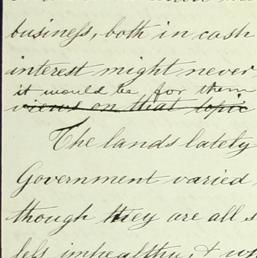 business, both in cash
interest might never
it would be for them
views on that topic
The lands lately
Government varied
though they are all s
less unhealthy, & wh